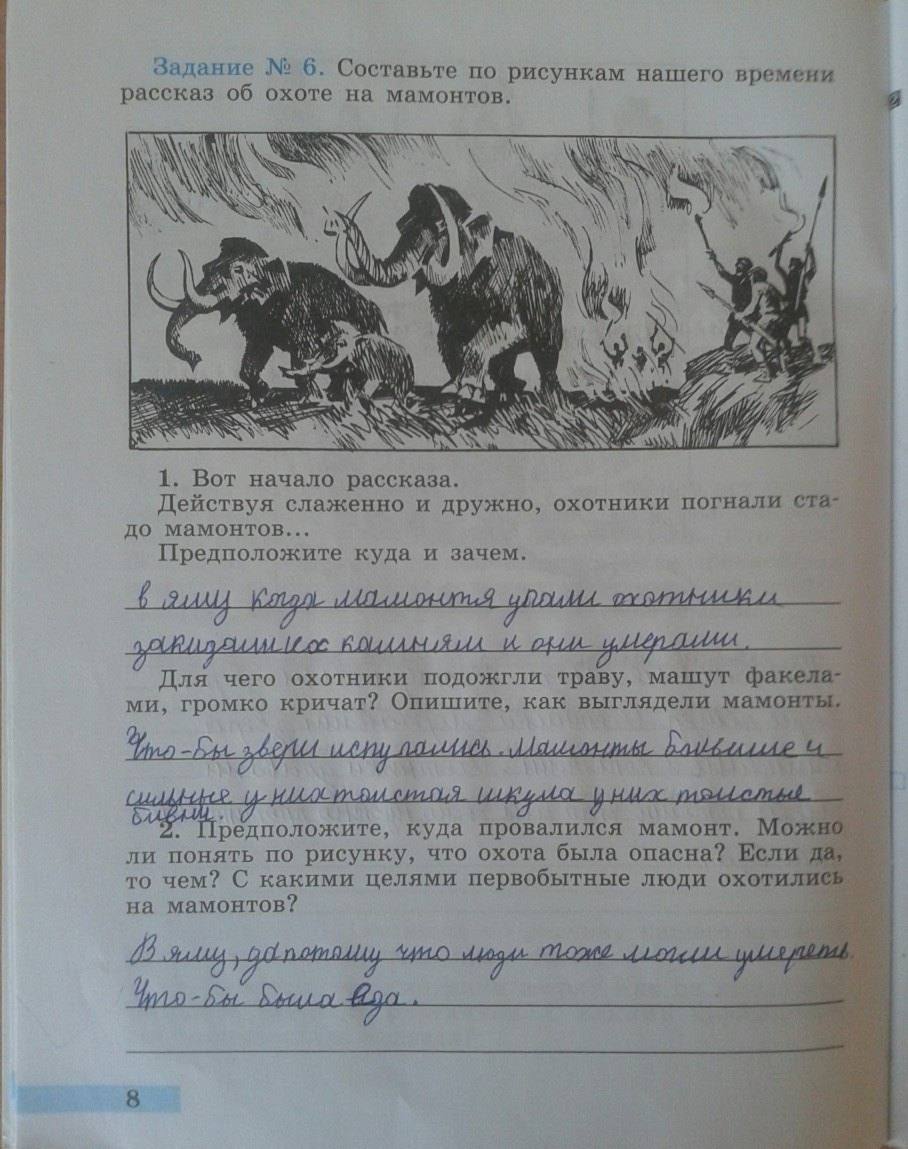 Задание № 6. Составьте по рисункам нашего времени
рассказ об охоте на мамонтов.
1. Вот начало рассказа.
Действуя слаженно и дружно, охотники погнали ста-
до мамонтов...
Предположите куда и зачем.
в яму когда мамонтя упали охотники
камням и они умерали.
Для чего охотники подожгли траву, машут факела-
ми, громко кричат? Опишите, как выглядели мамонты.
Что-бы звери испугались. Мамонты большие и
сильные у них толстая шкула у них толстые
бивни.
2. Предположите, куда провалился мамонт. Можно
ли понять по рисунку, что охота была опасна? Если да,
то чем? С какими целями первобытные люди охотились
на мамонтов?
В яму, да потому что люди тоже могли умереть.
Что-бы была еда.
8